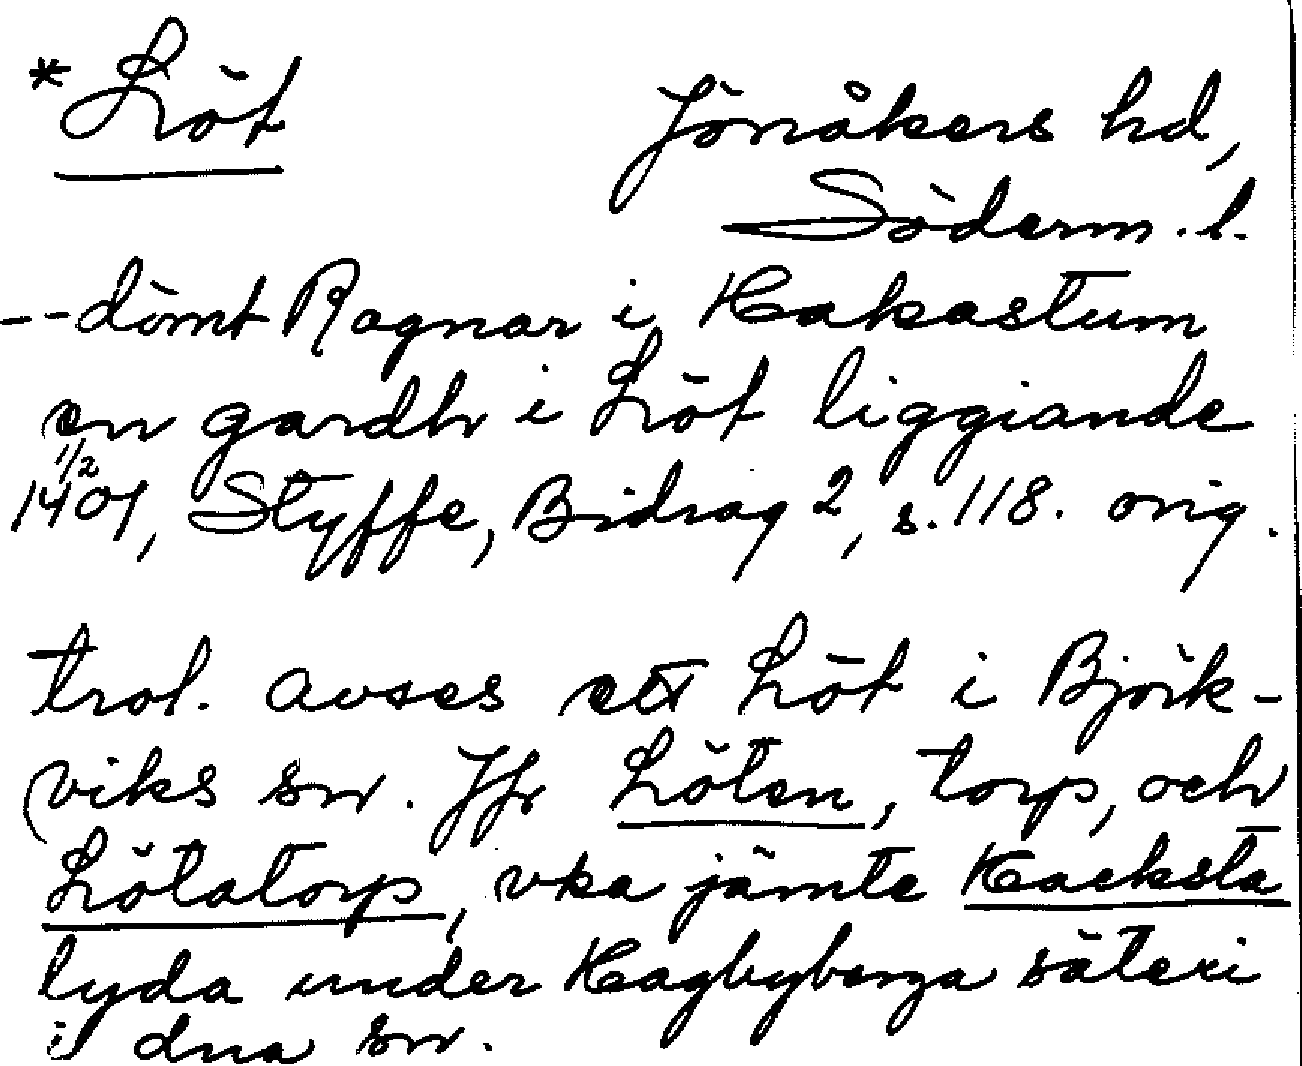 *Löt
Jönåkers hd,
Söderm. l.
-- dömt Ragnar i Hakastum
en gardh i Löt liggiande
1/2
1401, Styffe, Bidrag 2, s. 118. orig.
trol. avses ett Löt i Björk-
viks sn. Jfr Löten, torp, och
Lötatorp, vka jämte Hacksta
lyda under Hagbyberga säteri
i dna sn.